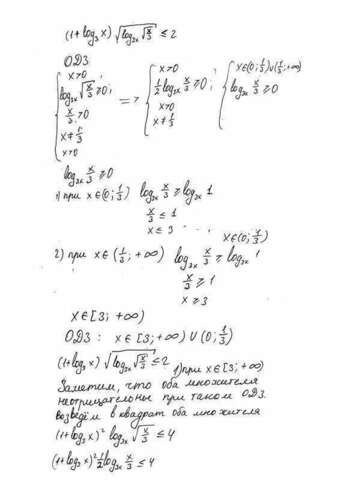 (1+log₃x)√(log₃ₓ√(x/3)) ≤ 2
ОДЗ
{ x>0; log₃ₓ√(x/3) ≥ 0; x/3 > 0; x≠1/3; x>0 => { x>0; 1/2 log₃ₓ x/3 ≥ 0; x>0; x≠1/3 { x∈(0; 1/3)∪(1/3; +∞); log₃ₓ x/3 ≥ 0
log₃ₓ x/3 ≥ 0
1) при x∈(0; 1/3) log₃ₓ x/3 ≥ log₃ₓ 1
x/3 ≤ 1
x ≤ 3 x∈(0; 1/3)
2) при x∈(1/3; +∞) log₃ₓ x/3 ≥ log₃ₓ 1
x/3 ≥ 1
x ≥ 3
x∈[3; +∞)
ОДЗ: x∈[3; +∞)∪(0; 1/3)
(1+log₃x)√(log₃ₓ√(x/3)) ≤ 2 1) при x∈[3; +∞)
Заметим, что оба множителя
неотрицательны при таком ОДЗ.
возведём в квадрат оба множителя
(1+log₃x)² log₃ₓ√(x/3) ≤ 4
(1+log₃x)² 1/2 log₃ₓ x/3 ≤ 4